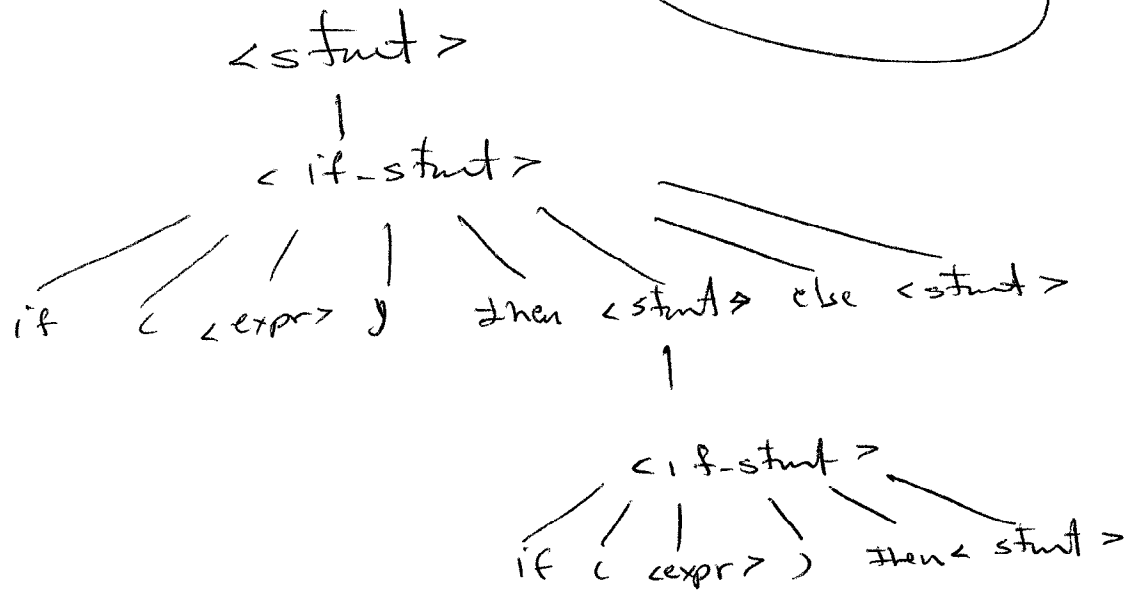 <stmt>
<if-stmt>
if ( <expr> ) then <stmt> else <stmt>
<if-stmt>
if ( <expr> ) then <stmt>